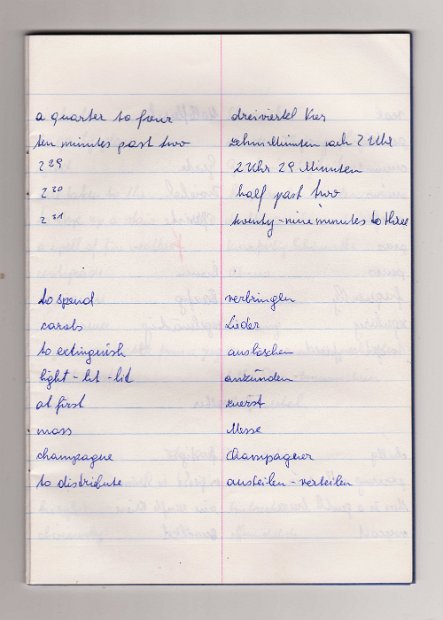 a quarter to four dreiviertel Vier
ten minutes past two zehn Minuten nach 2 Uhr
2 29 2 Uhr 29 Minuten
2 30 half past two
2 31 twenty-nine minutes to three
to spend verbringen
carols Lieder
to extinguish auslöschen
light - lit - lit anzünden
at first zuerst
mass Messe
champagne Champagner
to distribute austeilen - verteilen